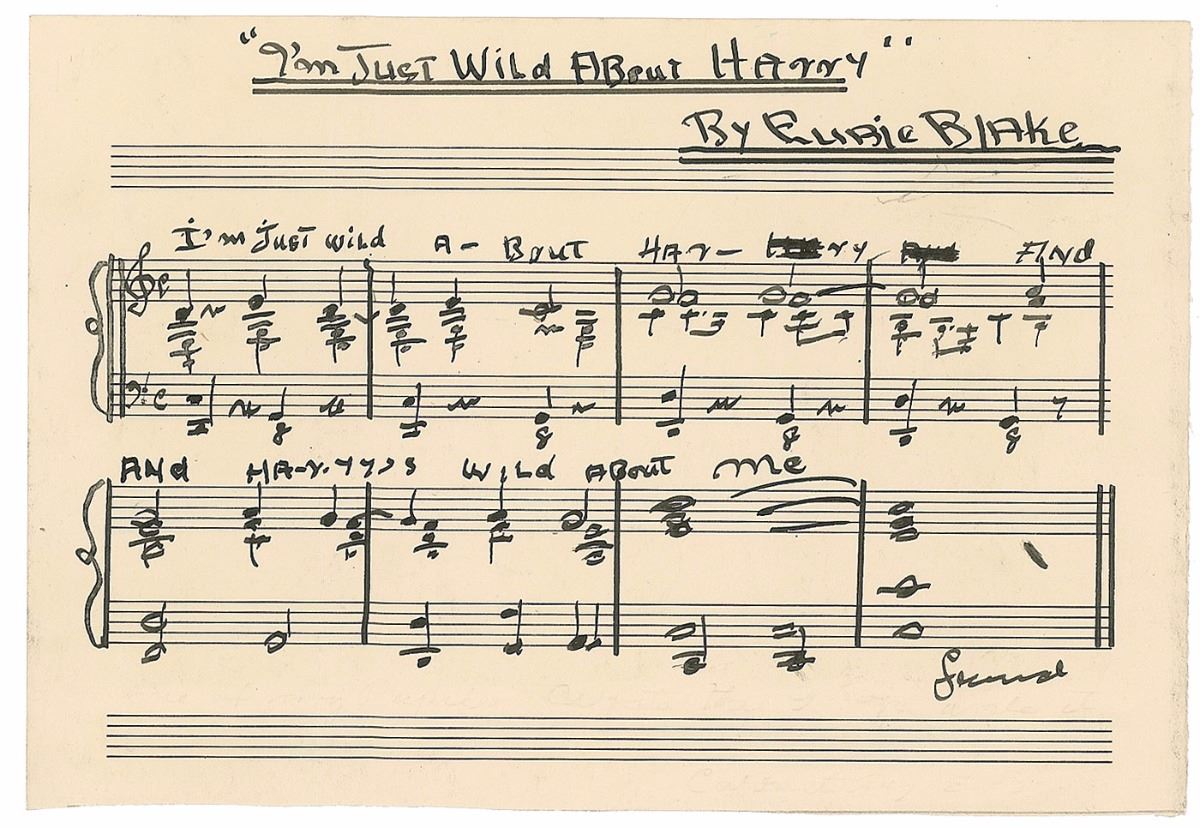 "I'm Just Wild About Harry"
By Eubie Blake
I'm Just wild A- Bout HAr- ry And
And HA-r-ry's Wild About Me